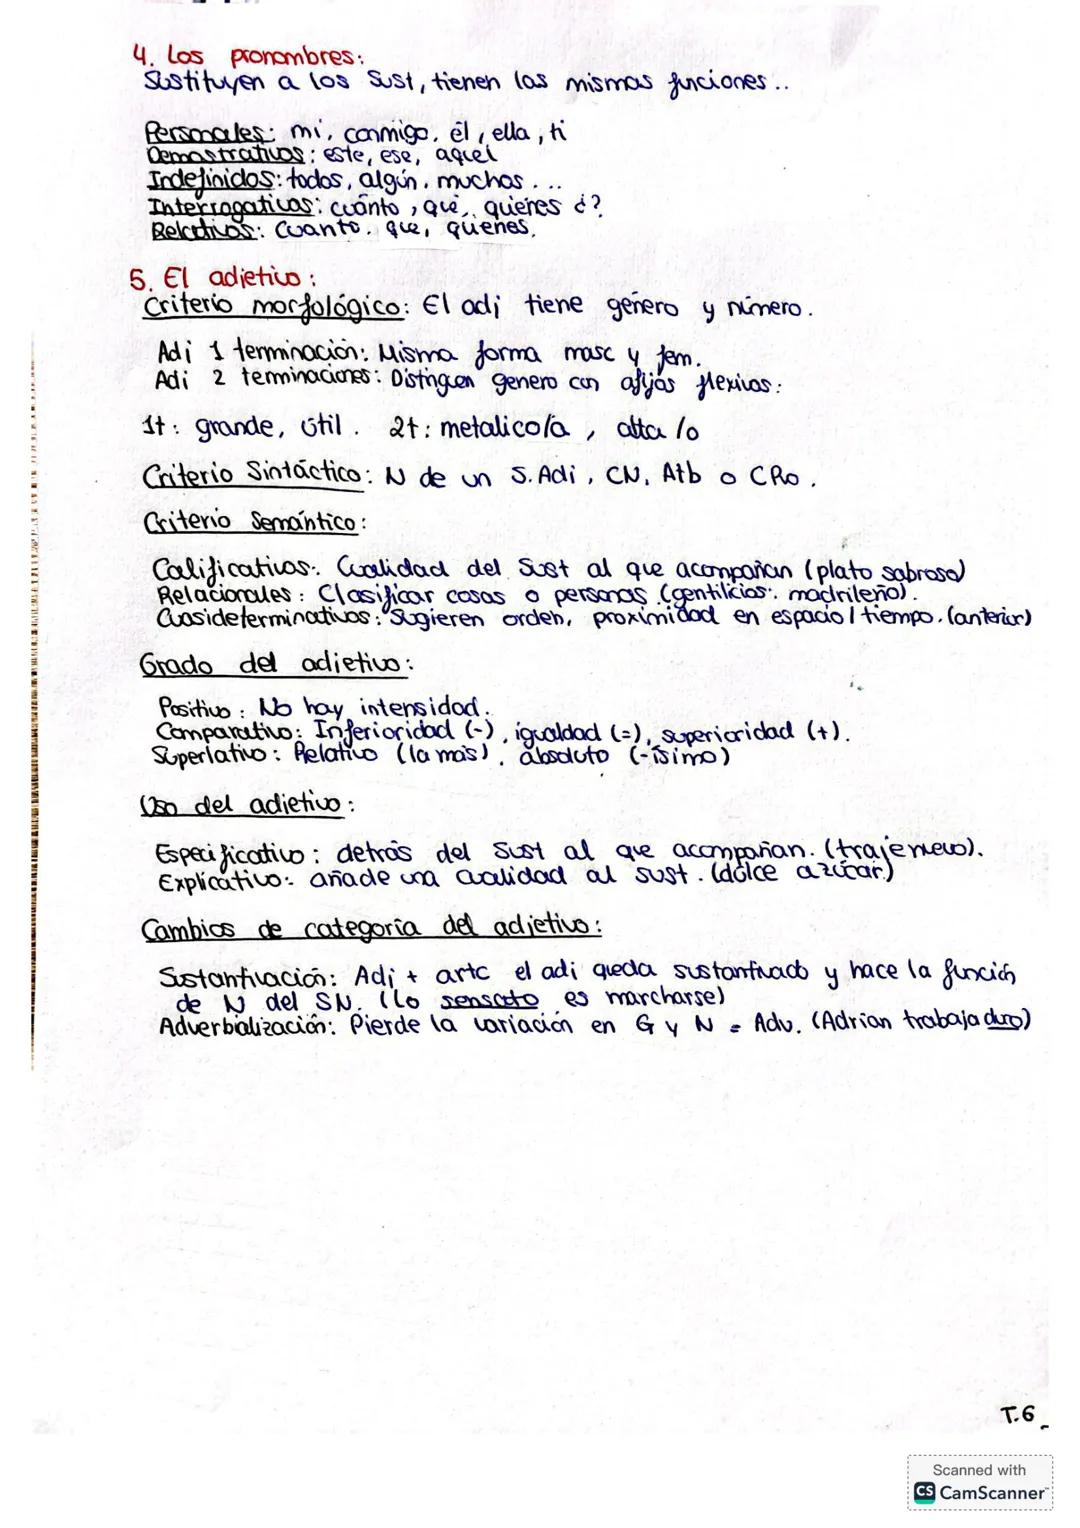 4. Los pronombres:
Sustituyen a los Sust, tienen las mismas funciones..
Personales: mí, conmigo, él, ella, ti
Demostrativos: este, ese, aquel
Indefinidos: todos, algún, muchos...
Interrogativos: cuánto, qué, quiénes ¿?
Relativos: Cuanto, que, quienes.
5. El adjetivo:
Criterio morfológico: El adj tiene género y número.
Adj 1 terminación: Misma forma masc y fem.
Adj 2 terminaciones: Distinguen genero con afijos flexivos:
1t: grande, útil. 2t: metalico/a, alta/o
Criterio Sintáctico: N de un S.Adj, CN, Atb o CRo.
Criterio Semántico:
Calificativos: Cualidad del Sust al que acompañan (plato sabroso)
Relacionales: Clasificar cosas o personas (gentilicios: madrileño).
Cuasideterminativos: Sugieren orden, proximidad en espacio/tiempo. (anterior)
Grado del adjetivo:
Positivo: No hay intensidad.
Comparativo: Inferioridad (-), igualdad (=), superioridad (+).
Superlativo: Relativo (la más), absoluto (-ísimo)
Uso del adjetivo:
Especificativo: detrás del Sust al que acompañan. (traje nuevo).
Explicativo: añade una cualidad al sust. (dulce azúcar)
Cambios de categoría del adjetivo:
Sustantivación: Adj + artc el adj queda sustantivado y hace la función
de N del SN. (Lo sensato es marcharse)
Adverbialización: Pierde la variación en G y N = Adv. (Adrian trabaja duro)
T.6
Scanned with
CS CamScanner